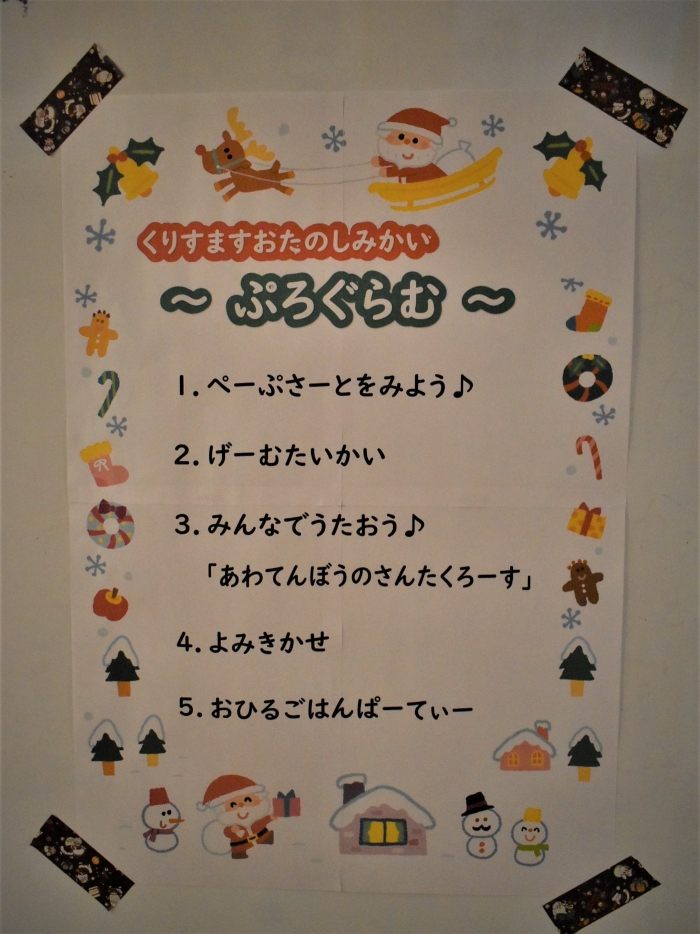 くりすますおたのしみかい
～ ぷろぐらむ ～
1. ぺーぷさーとをみよう♪
2. げーむたいかい
3. みんなでうたおう♪
「あわてんぼうのさんたくろーす」
4. よみきかせ
5. おひるごはんぱーてぃー